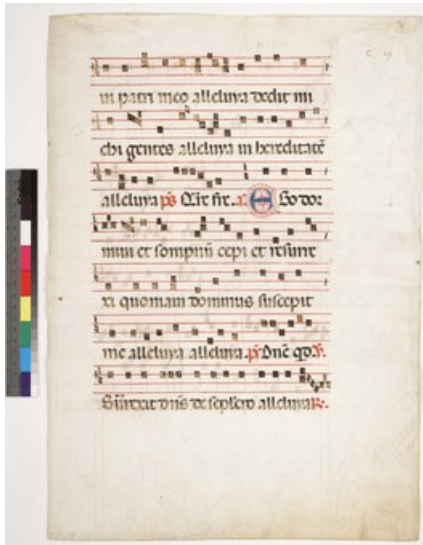 in patri meo alleluya dedit mi
chi gentes alleluya in hereditatē
alleluya ps Q̄re frēt. a. Ego dor
mivi et sompnū cepi et resurre
xi quoniam dominus suscepit
me alleluya alleluya. ps Dn̄e qd. ℣.
Surrexit dn̄s de sepulcro alleluya ℟.